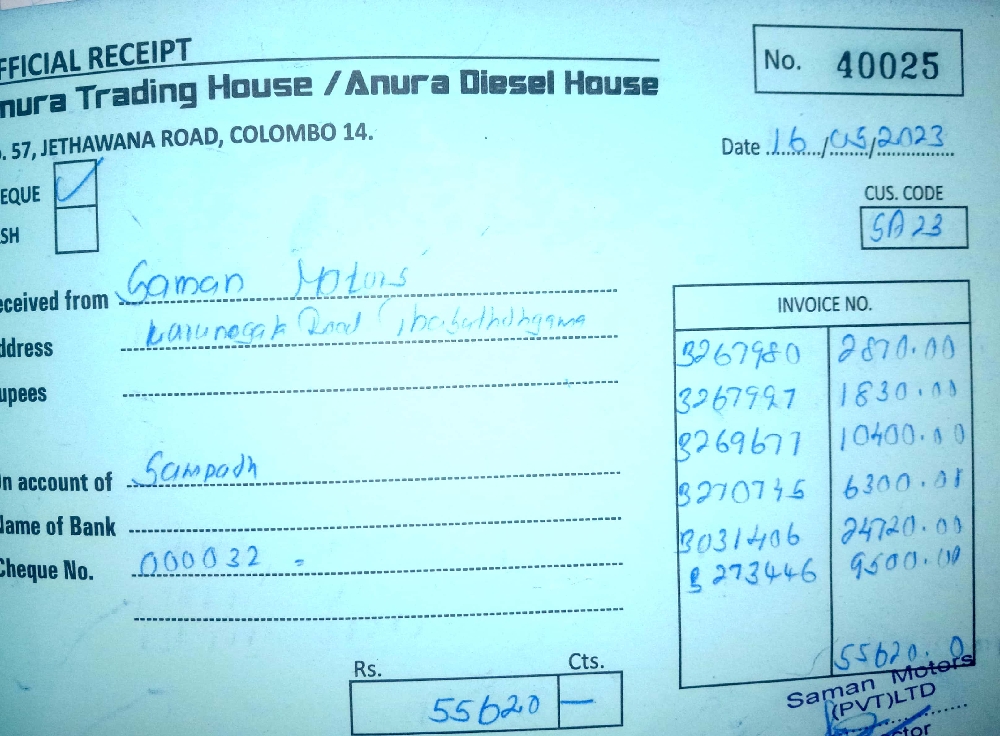 FFICIAL RECEIPT
No. 40025
nura Trading House / Anura Diesel House
. 57, JETHAWANA ROAD, COLOMBO 14.
Date 16/05/2023
EQUE ✓
SH
CUS. CODE
SA 23
eceived from Saman Motors
ddress Road
upees
INVOICE NO.
3267980 2870.00
3267997 1830.00
3269677 10400.00
3270745 6300.00
3031406 24720.00
3273446 9500.00
55620.0
n account of Sampath
Name of Bank
Cheque No. 000032 -
Rs. Cts.
55620 —
Saman Motors
(PVT)LTD
ctor